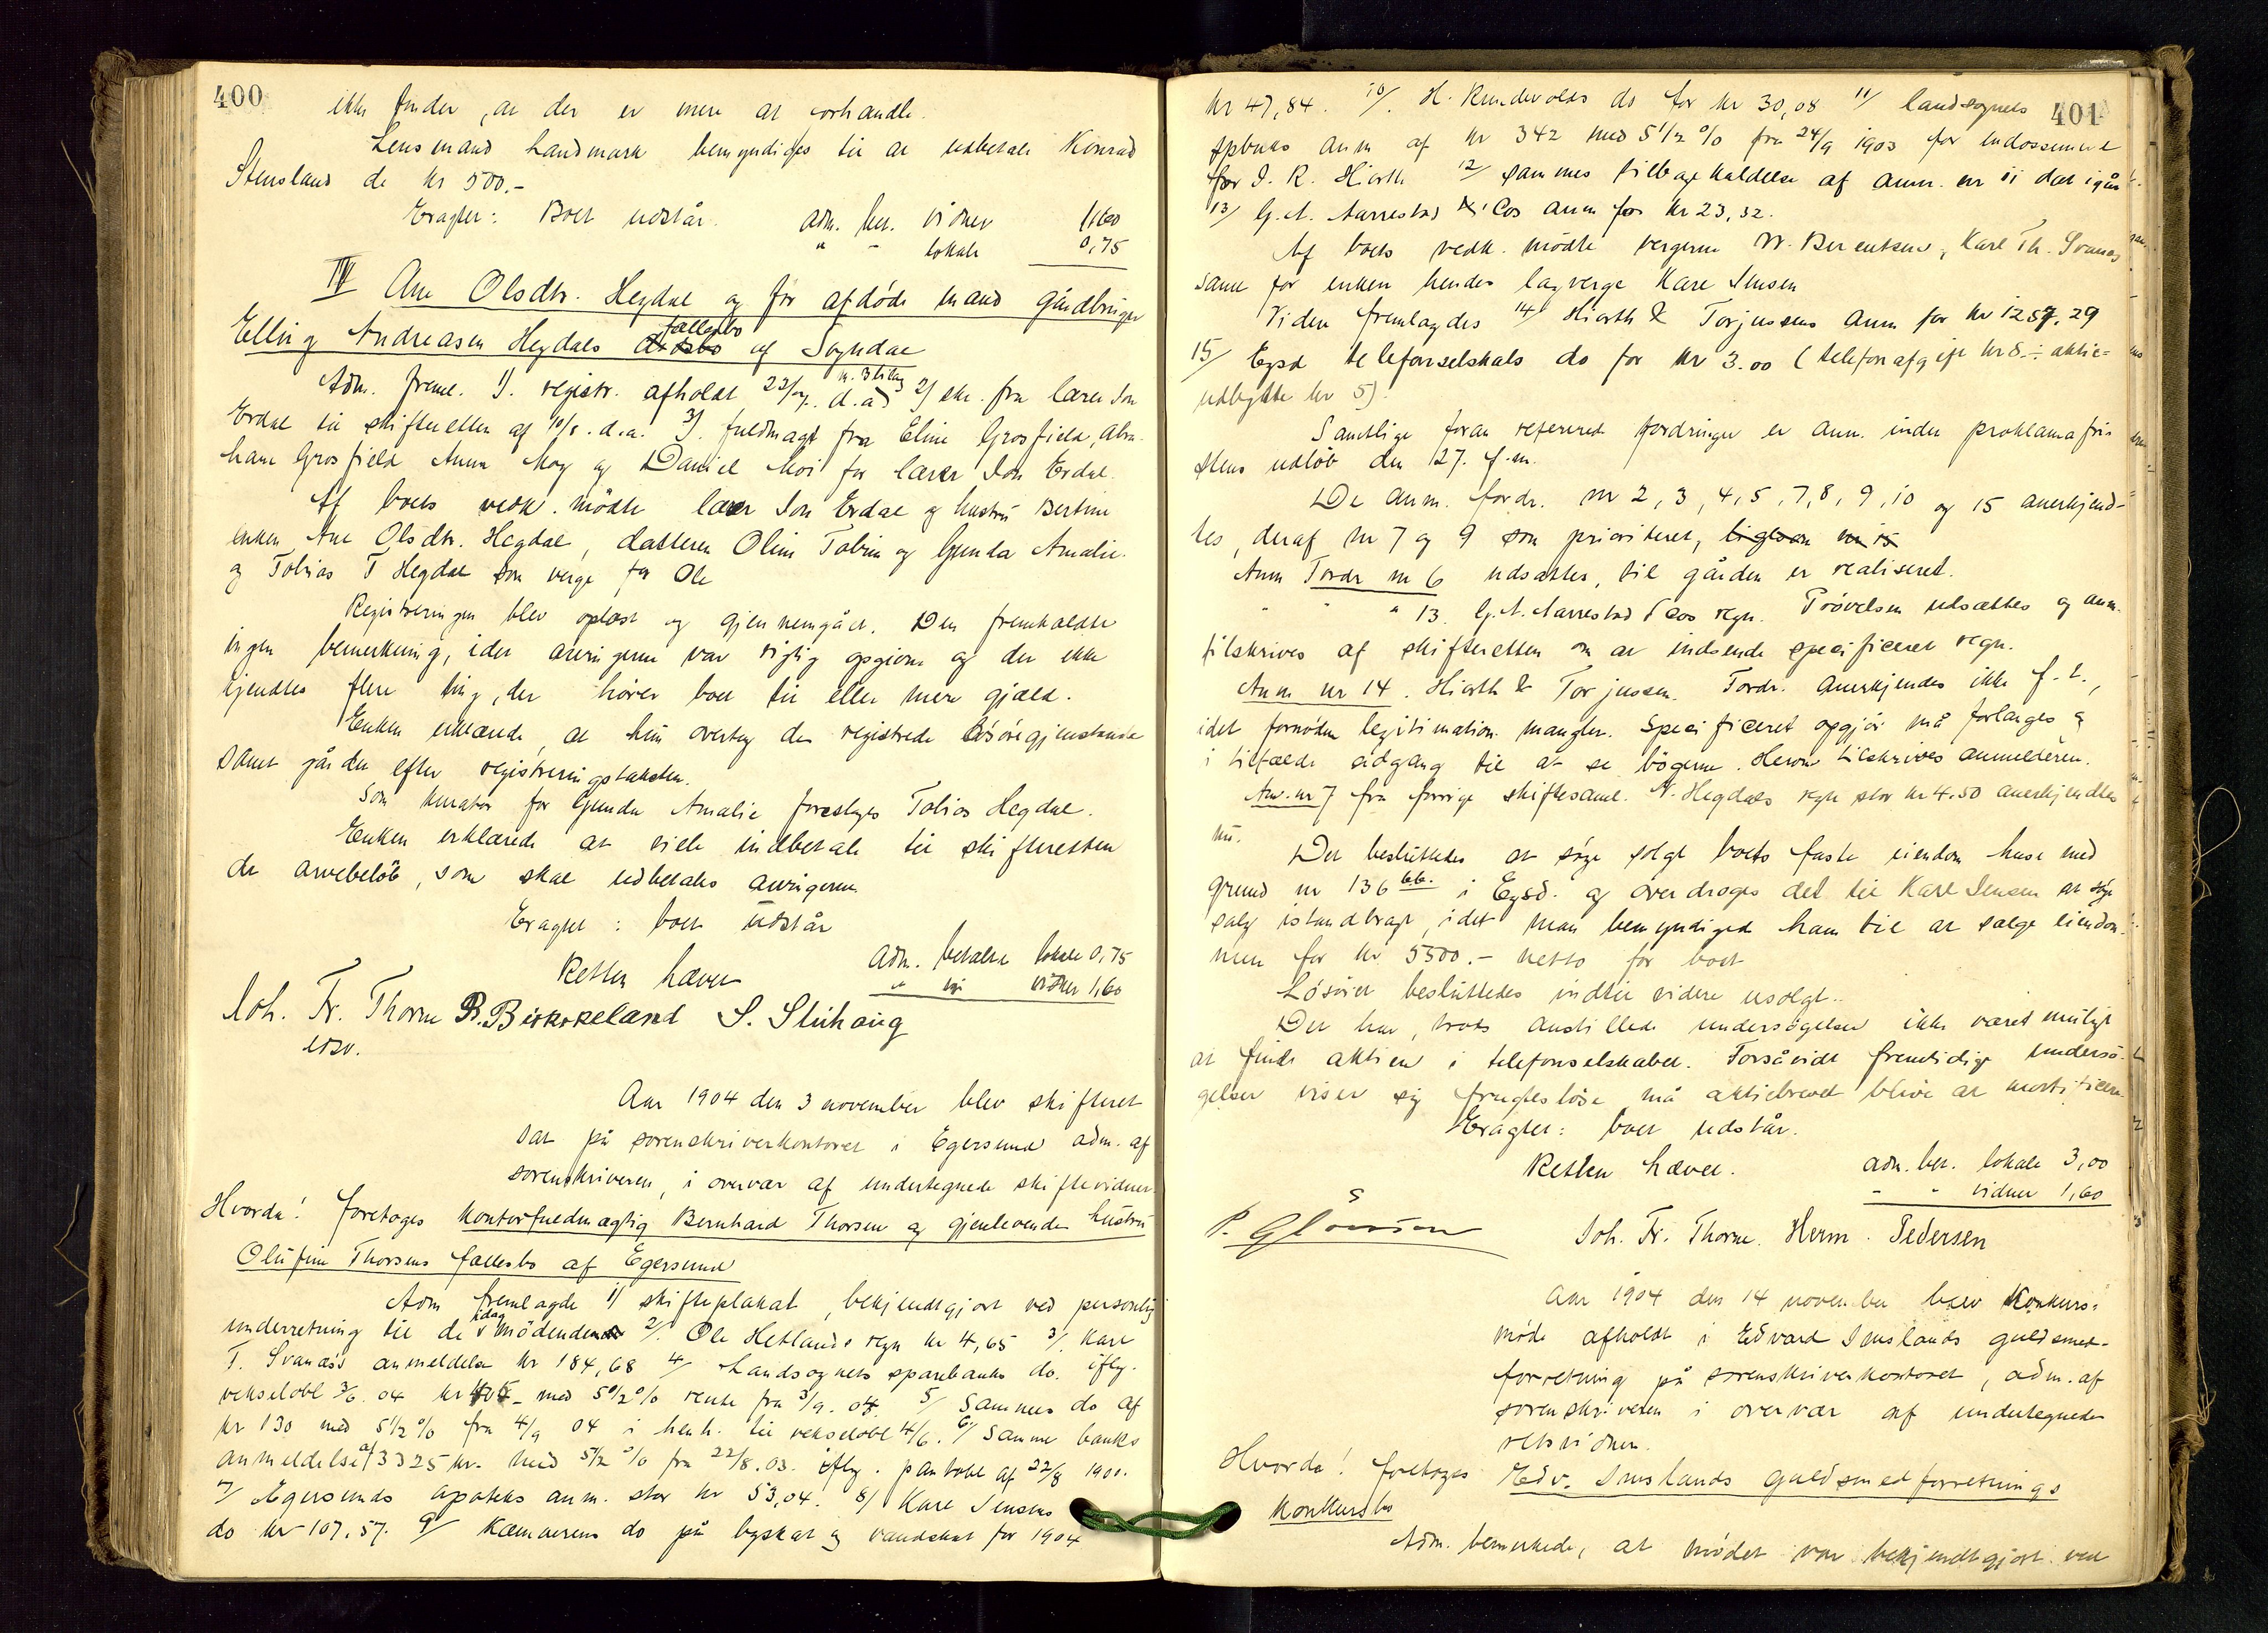 400
ikke finder, at der er mere at forhandle.
Lensmand Landmark bemyndiges til at udbetale Konrad
Stensland de kr 500.-
Eragtet: Boet udstår. adm. bet. vidner 1,60
" - lokale 0,75
IV Ane Olsdtr. Hegdal og før afdøde mand gårdbruger
Elling Andreasen Hegdals fællesbo af Sogndal
Adm. freml. 1). registr. afholdt 22/9. d.a. m. 3 bilag 2) skr. fra lærer Jon
Erdal til skifteretten af 10/8. d.a. 3). fuldmagt fra Eline Grosfield, Abra-
ham Grosfield Anna Moy og Daniel Moi for lærer Jon Erdal.
Af boets vedk. mødte lærer Jon Erdal og hustru Bertine
enken Ane Olsdtr. Hegdal, datteren Oline Tobine og Gunda Amalie
og Tobias T Hegdal som verge for Ole
Registreringen blev oplæst og gjennemgået. Den fremkaldte
ingen bemerkning, idet arvingerne var rigtig opgivne og der ikke
kjendtes flere ting, der hører boet til eller mere gjæld.
Enken erklærede, at hun overtog de registrede løsøregjenstande
samt gården efter registreringstaksten.
Som kurator for Gunda Amalie foreslåges Tobias Hegdal.
Enken erklærede at ville indbetale til skifteretten
de arvebeløb, som skal udbetales arvingerne
Eragtet: boet udstår
Retten hævet adm. betalte lokale 0,75
" vidner 1,60
Joh. Fr. Thorne B. Birkeland S. Stuhaug
Aar 1904 den 3 november blev skifteret
sat på sorenskriverkontoret i Egersund adm. af
sorenskriveren, i overvær af undertegnede skiftevidner.
Hvorda! foretoges kontorfuldmægtig Bernhard Thorsen og gjenlevende hustru
Olufine Thorsens fællesbo af Egersund
Adm fremlagde 1) skifteplakat, bekjendtgjort ved personlig
underretning til de idag mødende 2/ Ole Hetlands regn kr 4,65 3/. Karl
T. Svanæs's anmeldelse kr 184,68 4/ Landsognets sparebanks do. iflg.
vekselobl 3/6. 04 kr 405 - med 5 1/2 % rente fra 3/9. 04. 5/ Sammes do af
kr 130 med 5 1/2 % fra 4/9 04 i henh. til vekselobl 4/6. 6/ Samme banks
anmeldelse af 3325 kr. med 5 1/2 % fra 22/8. 03. iflg. pantobl af 22/8 1901.
7/ Egersunds apoteks anm. stor kr 53,04. 8/ Karl Jensens
do kr 107.57. 9/ Kæmnerens do på byskat og vandskat for 1904
401
kr 47,84. 10/. H. Rundevolds do for kr 30,08 11/ landsognets
spbnks anm af kr 342 med 5 1/2 % fra 24/9 1903 for endossement
for J. R. Hiorth 12/ sammes tilbagekaldelse af anm. nr 11 dat igår
13/ G. A. Aarrestad & Cos anm for kr 23,32.
Af boets vedk. mødte vergerne W. Berentsen, Karl Th. Svanæs
samt for enken hendes lagverge Karl Jensen
Viden fremlagdes 14/ Hiorth & Torjussens anm for kr 1257,29
15/ Egsd telefonselskabs do for kr 3.00 (telefonafgift kr 8.- ÷ aktie-
udbytte kr 5).
Samtlige foran refererede fordringer er anm. inden proklamafri-
stens udløb den 27. f.m.
De anm. fordr. nr 2, 3, 4, 5, 7, 8, 9, 10 og 15 anerkjend-
tes, deraf nr 7 og 9 som prioriteret, ligesom nr 15
Anm Fordr nr 6 udsættes, til gården er realiseret.
" " " 13. G. A. Aarrestad & Cos regn. Prøvelsen udsættes og anm.
tilskrives af skifteretten om at indsende specificeret regn.
Anm nr 14. Hiorth & Torjussen. Fordr. anerkjendes ikke f. t.,
idet fornøden legitimation mangler. Specificeret opgjør må forlanges og
i tilfælde adgang til at se bøgerne. Herom tilskrives anmelderen.
An. nr 7 fra forrige skiftesaml. N. Hegdals regn stor kr 4.50 anerkjendtes
nu.
Det besluttedes at søge solgt boets faste eiendom huse med
grund nr 136 bb. i Egsd. og overdroges det til Karl Jensen at søge
salg istandbragt, idet man bemyndiged ham til at sælge eiendom-
men for kr 5500.- netto for boet
Løsøret besluttedes indtil videre usolgt.
Det har, trods anstillede undersøgelser ikke været muligt
at finde aktien i telefonselskabet. Forsåvidt fremtidige undersø-
gelser viser sig frugtesløse må aktiebrevet blive at mortificere
Eragtet: boet udstår.
Retten hævet. adm. bet. lokale 3,00
- " vidner 1,60
Joh. Fr. Thorne. Herm. Pedersen
Aar 1904 den 14 november blev konkurs-
møde afholdt i Edvard Imslands guldsmed-
forretning på sorenskriverkontoret, adm. af
sorenskriveren i overvær af undertegnede
retsvidner.
Hvorda! foretoges Edv. Imslands guldsmedforretnings
konkursbo
Adm. bemerkede, at mødet var bekjendtgjort ved